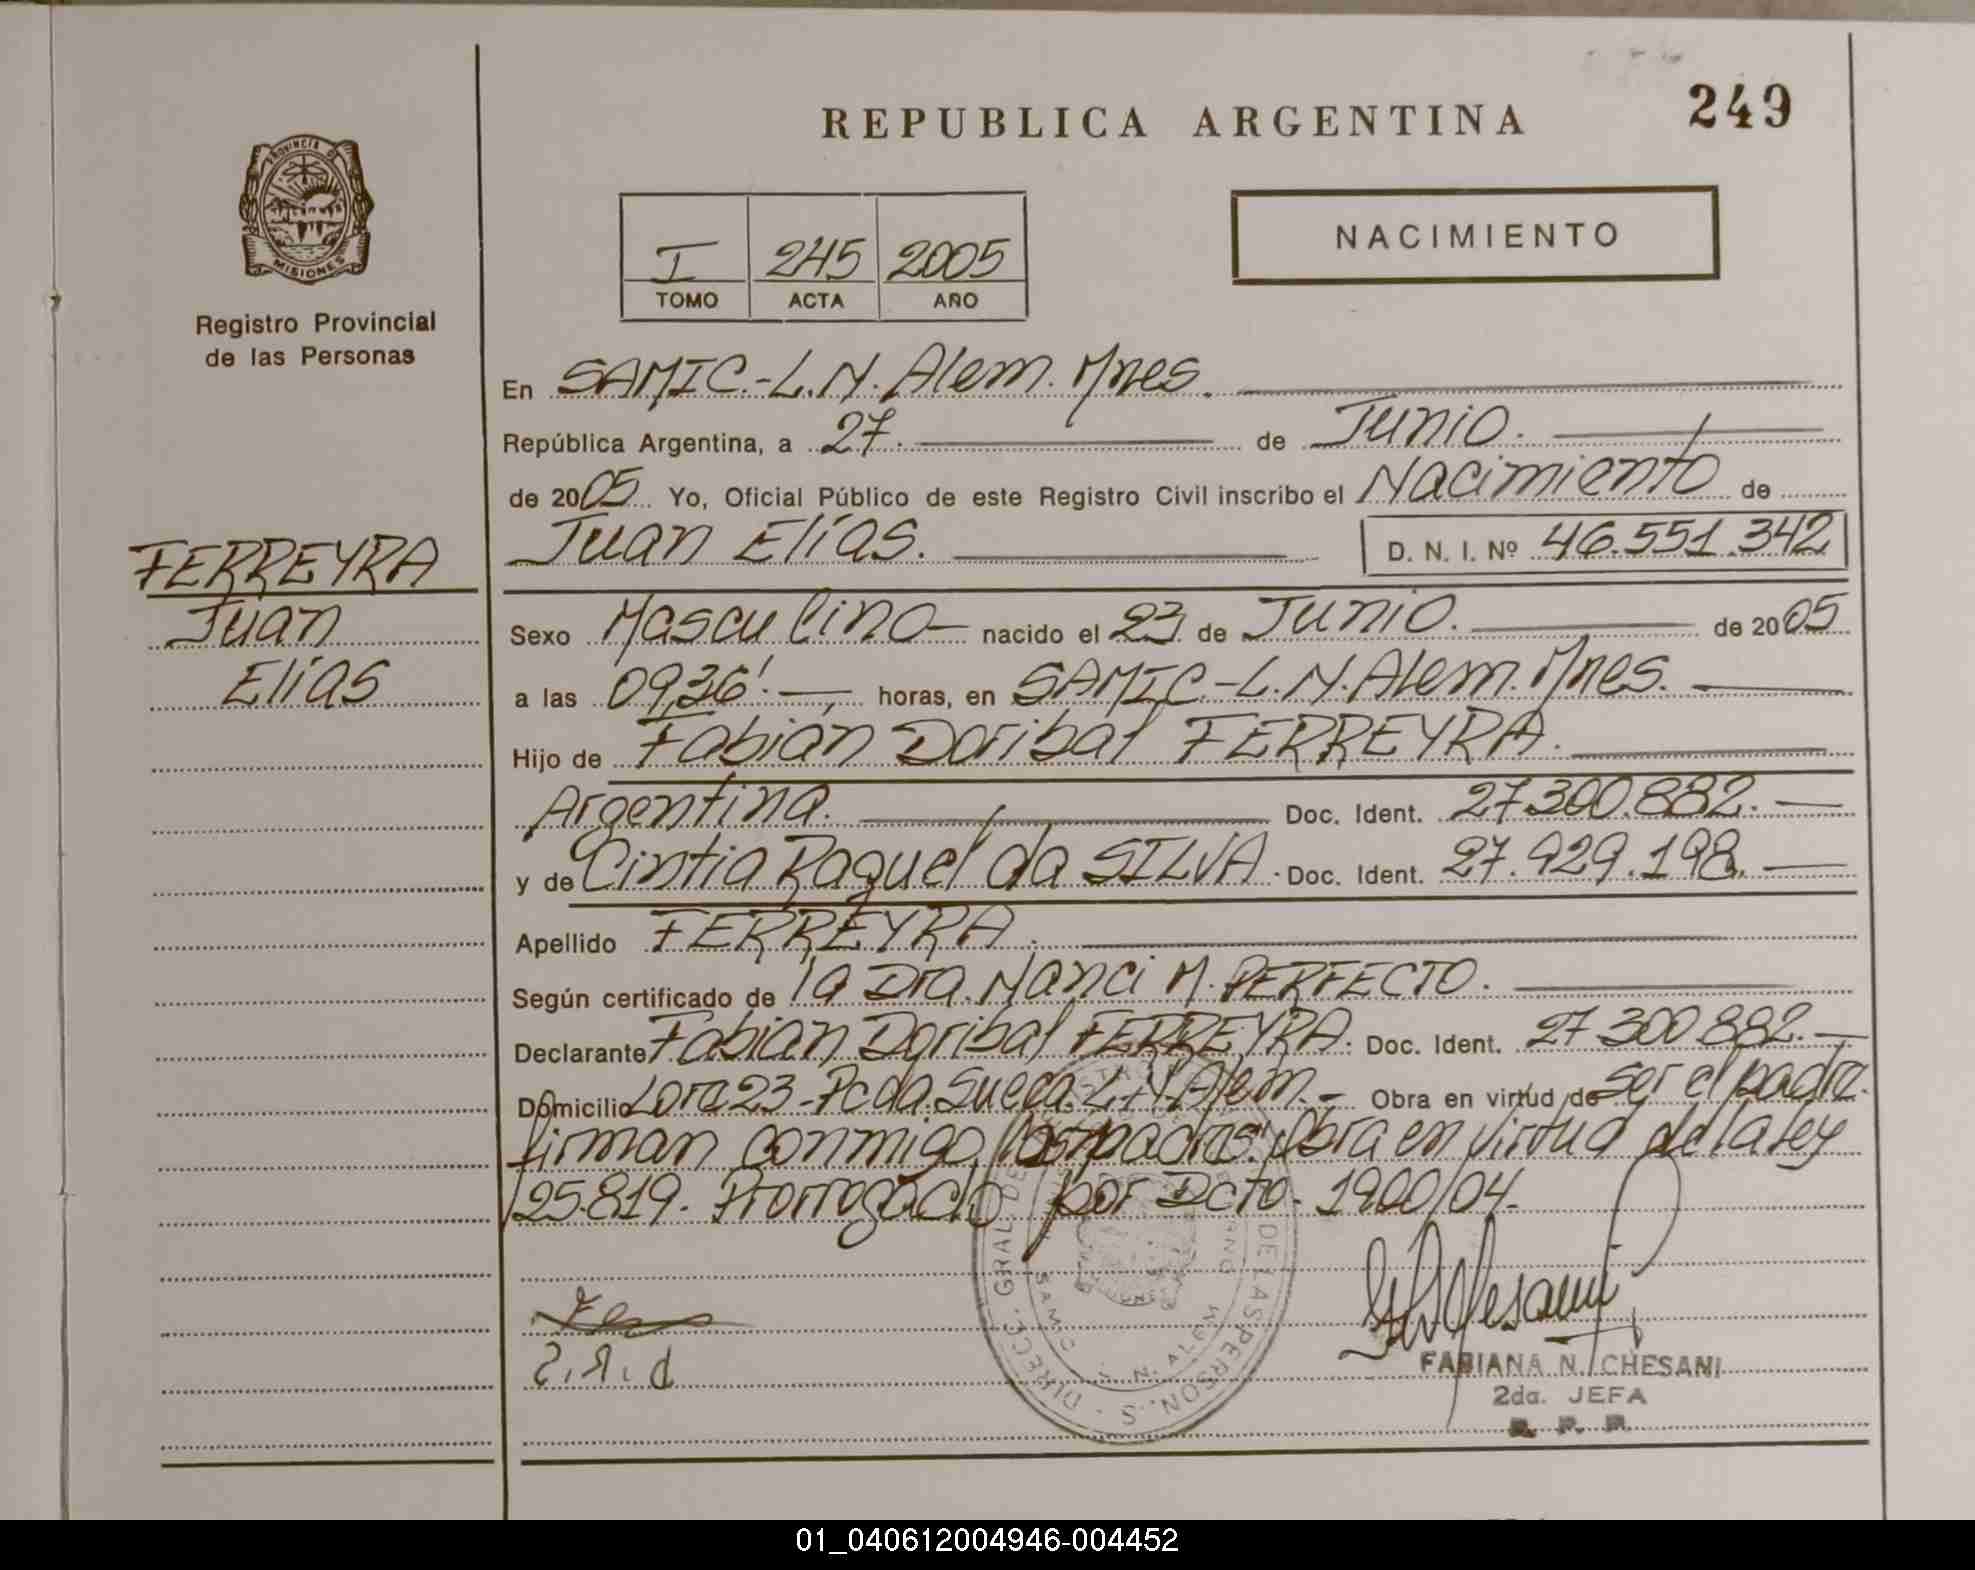 REPUBLICA ARGENTINA
249
PROVINCIA DE
MISIONES
Registro Provincial
de las Personas
I 245 2005
TOMO ACTA AÑO
NACIMIENTO
En SAMIC.-L.N. Alem. Mnes.
República Argentina, a 27. de Junio.
de 2005 Yo, Oficial Público de este Registro Civil inscribo el Nacimiento de
Juan Elías. D. N. I. Nº 46.551.342
FERREYRA
Juan
Elías
Sexo Masculino nacido el 23 de Junio. de 2005
a las 09,36'. horas, en SAMIC-L.N. Alem. Mnes.
Hijo de Fabián Doribal FERREYRA.
Argentina. Doc. Ident. 27.300.882.
y de Cintia Raquel da SILVA. Doc. Ident. 27.929.198.
Apellido FERREYRA.
Según certificado de la Dra. Nanci M. PERFECTO.
Declarante Fabián Doribal FERREYRA. Doc. Ident. 27 300 882.
Domicilio Lote 23-Pcda. Sueca. L.N. Alem. Obra en virtud de ser el padre.
firman conmigo los padres. Obra en virtud de la ley
25.819. Prorrogado por Dcto. 1900/04.
DIREC. GRAL DE DE LAS PERSON.S
SAMIC L. N. ALEM
FABIANA N. CHESANI
2da. JEFA
R. P. P.
01_040612004946-004452